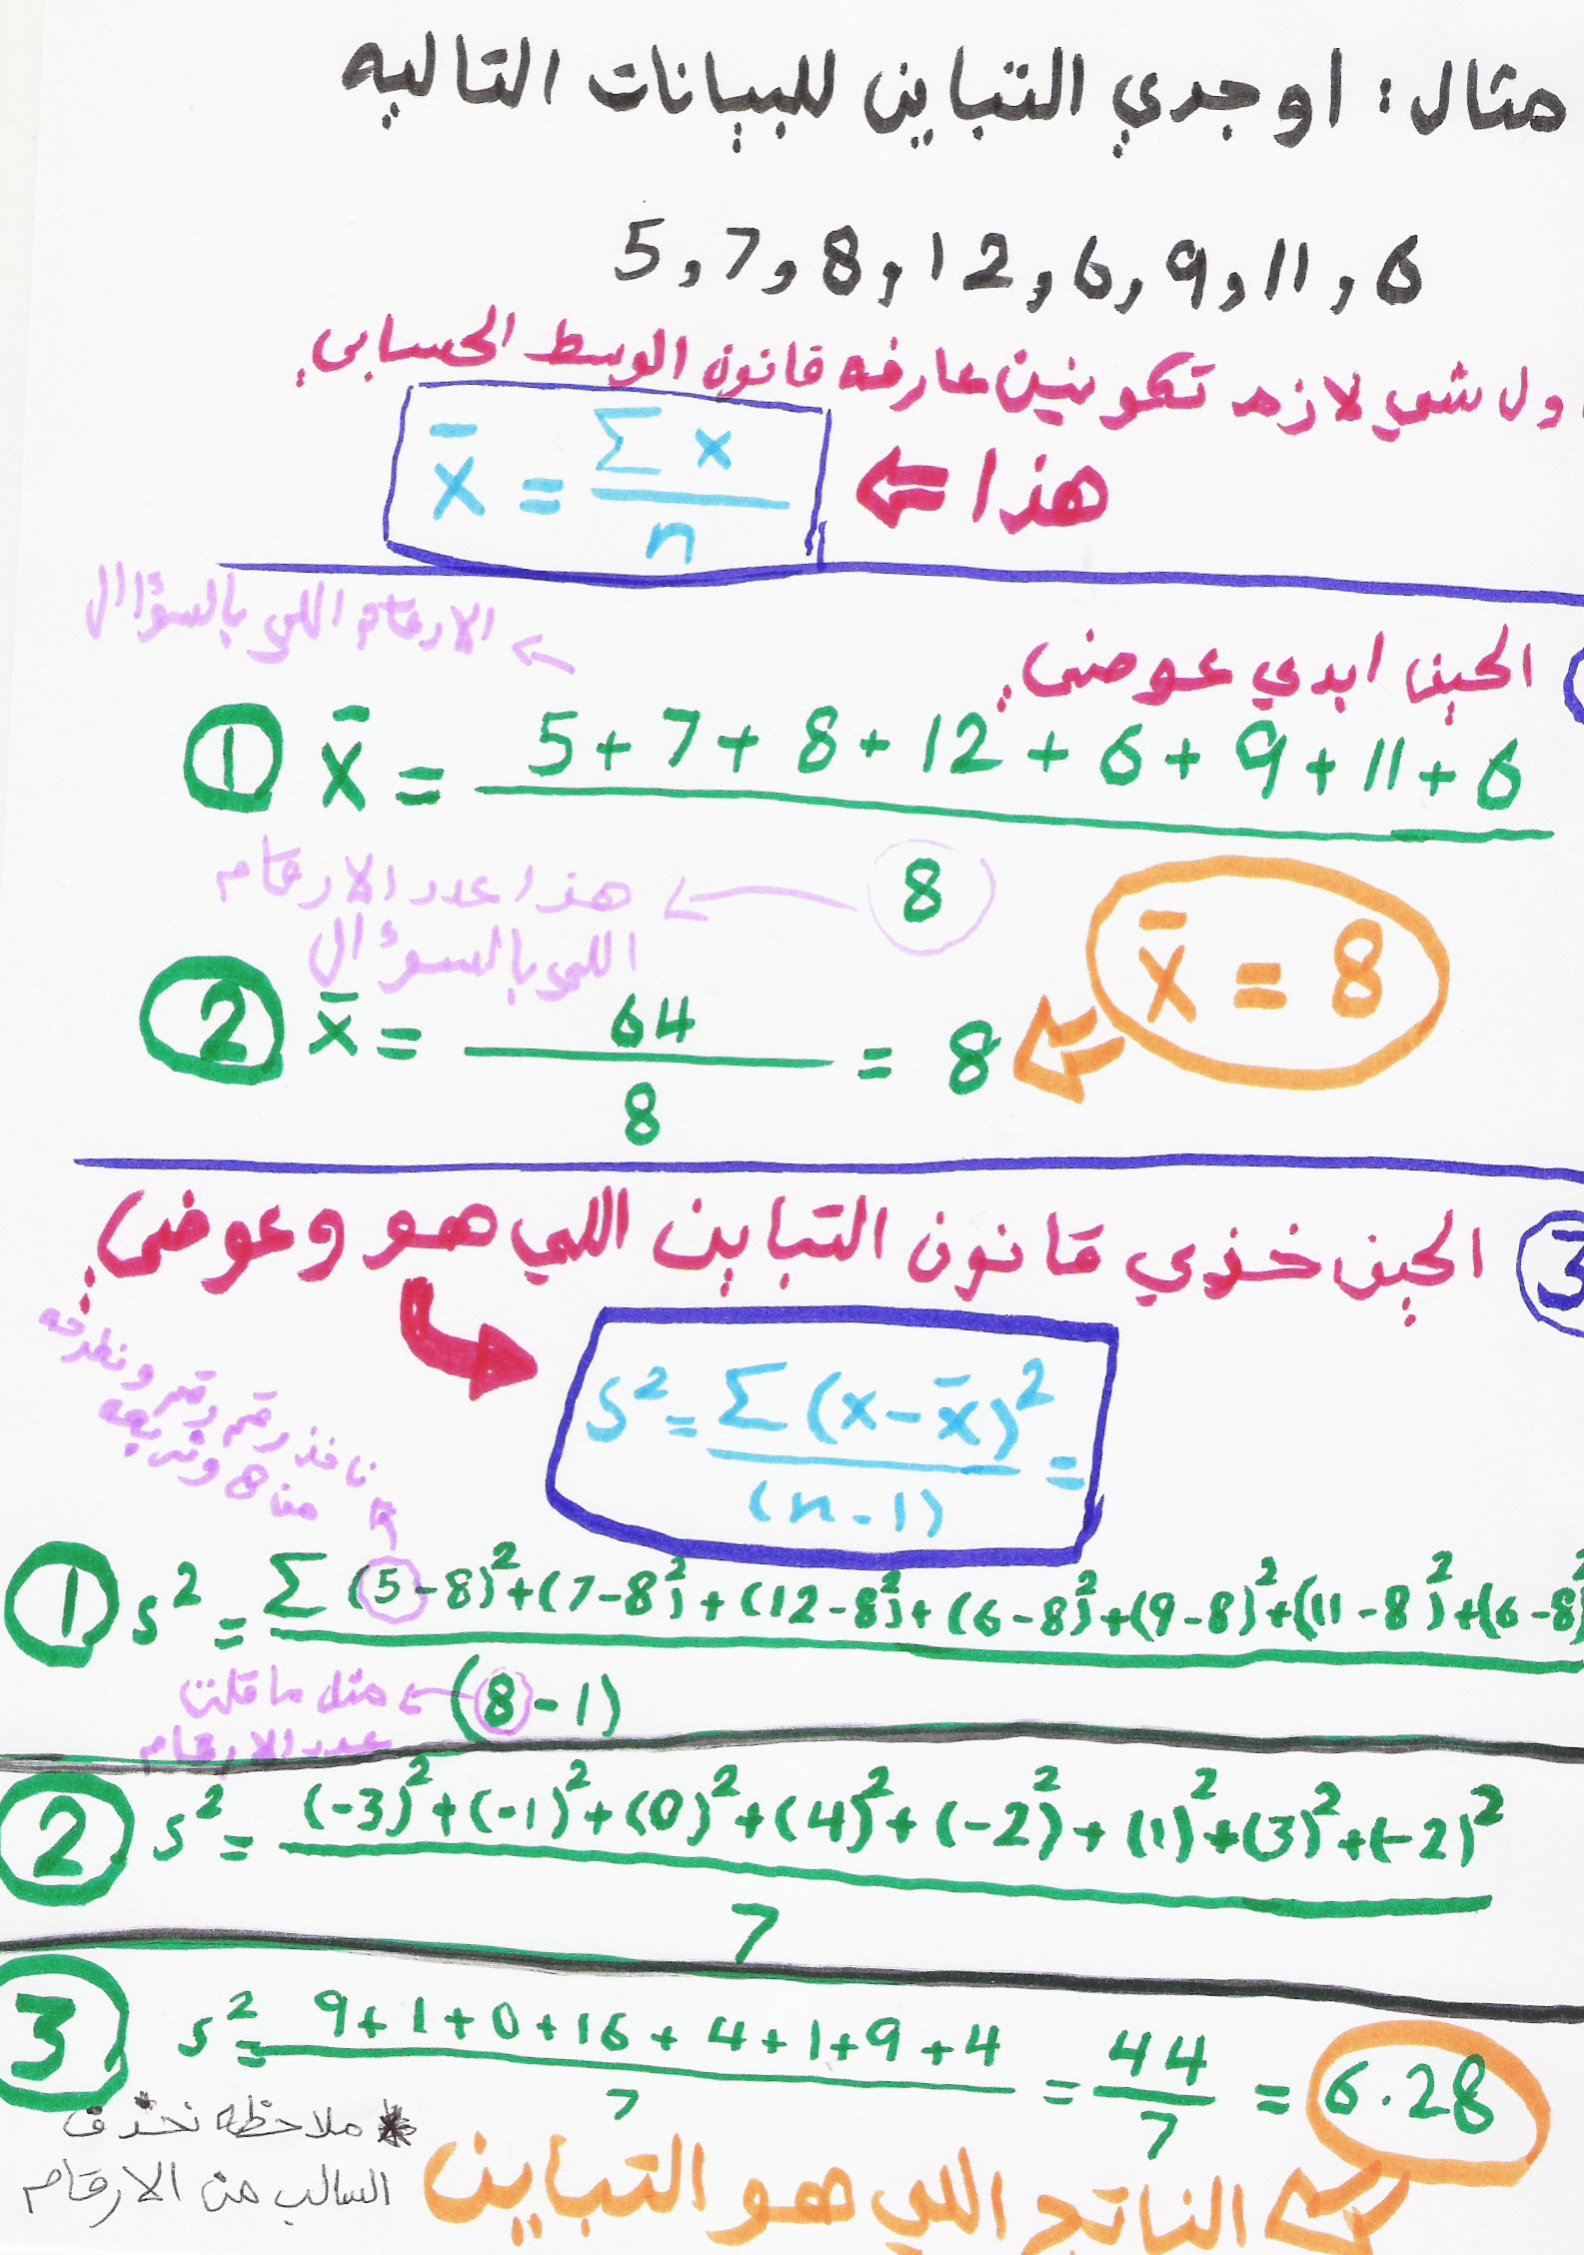 مثال: اوجدي التباين للبيانات التاليه
5,7,8,12,6,9,11,6
اول شي لازم تكونين عارفه قانون الوسط الحسابي
هذا ⇐
x̄ = Σx / n
← الارقام اللي بالسؤاال
الحين ابدي عوضي
① x̄ = 5+7+8+12+6+9+11+6
8 ← هذا عدد الارقام
اللي بالسوءال
x̄ = 8
② x̄ = 64 / 8 = 8
③ الحين خذي قانون التباين اللي هو وعوضي
S² = Σ(x-x̄)² / (n-1) =
ناخذ رقم رقم ونطرحه
معاه ونربعه
① s² = Σ (5-8)²+(7-8)²+(12-8)²+(6-8)²+(9-8)²+(11-8)²+(6-8)²
(8-1) ← مثل ما قلت
عدد الارقام
② s² = (-3)²+(-1)²+(0)²+(4)²+(-2)²+(1)²+(3)²+(-2)²
7
③ s² = 9+1+0+16+4+1+9+4 / 7 = 44 / 7 = 6.28
* ملاحظه نحذف
السالب من الارقام
الناتج اللي هو التباين